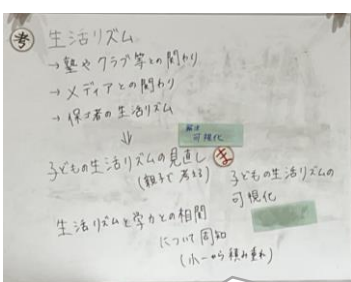 考 生活リズム
→塾やクラブ等との関わり
→メディアとの関わり
→保護者の生活リズム
↓
解決
可視化
子どもの生活リズムの見直し ま
(親子で考える)
子どもの生活リズムの
可視化
生活リズムと学力との相関
について周知
(小一から積み重ね)